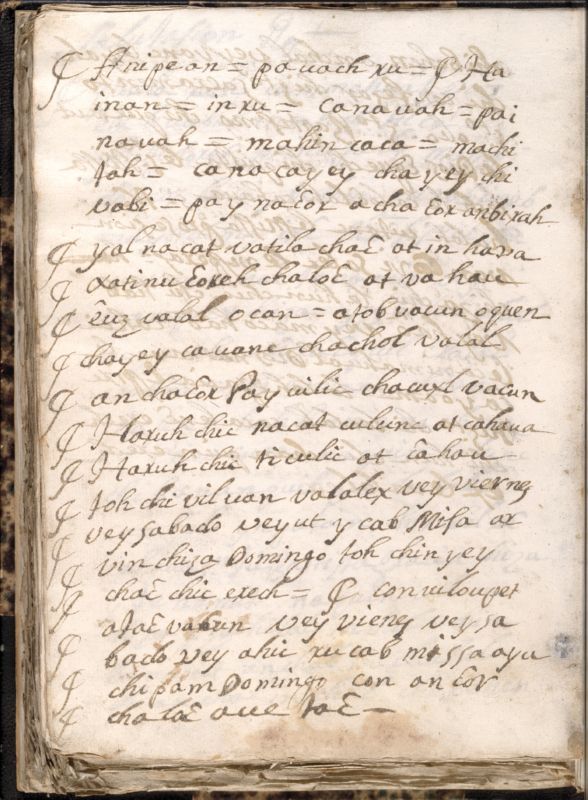 ₡ Anipean = pa vach xu = ₡ Ha
inan = in xu = canavah = pai
navah = mahin caca = machi
tah = canacayey chayey chi
vabi = pay na c̄or acha c̄or anbirah
₡ yal nacat vatila chac̄ at in hava
₡ xatinu c̄oreh chaloc̄ at va hau
₡ valal ocan = atob vacun oquen
₡ chayey cavane chachol valal
₡ an cha c̄or Pay cilic vacun
₡ Haxuh chic nacat culunc at cahava
₡ Haxuh chic ticulic at c̄ahau
₡ toh chi vil van valalex vey vierneȝ
₡ vey sabado vey ut y cab Misa ax
₡ vin chiza Domingo toh chin yey
₡ chac̄ chic exech = ₡ con viloupet
atac̄ vabun vey viene vey sa
₡ bado vey ahic xu cab missa axu
₡ chi pam Domingo con an c̄or
₡ chaloc̄ ave tac̄ —